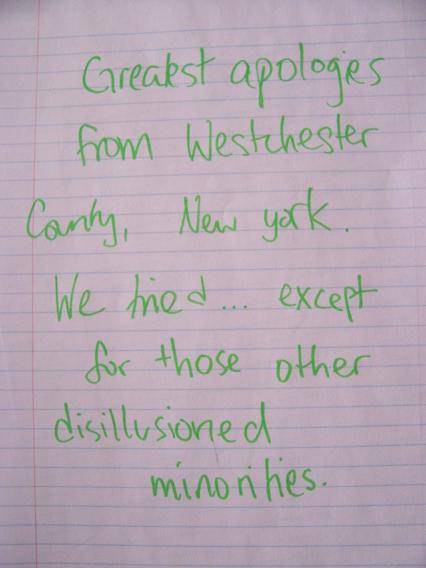 Greatest apologies
from Westchester
County, New york.
We tried... except
for those other
disillusioned
minorities.